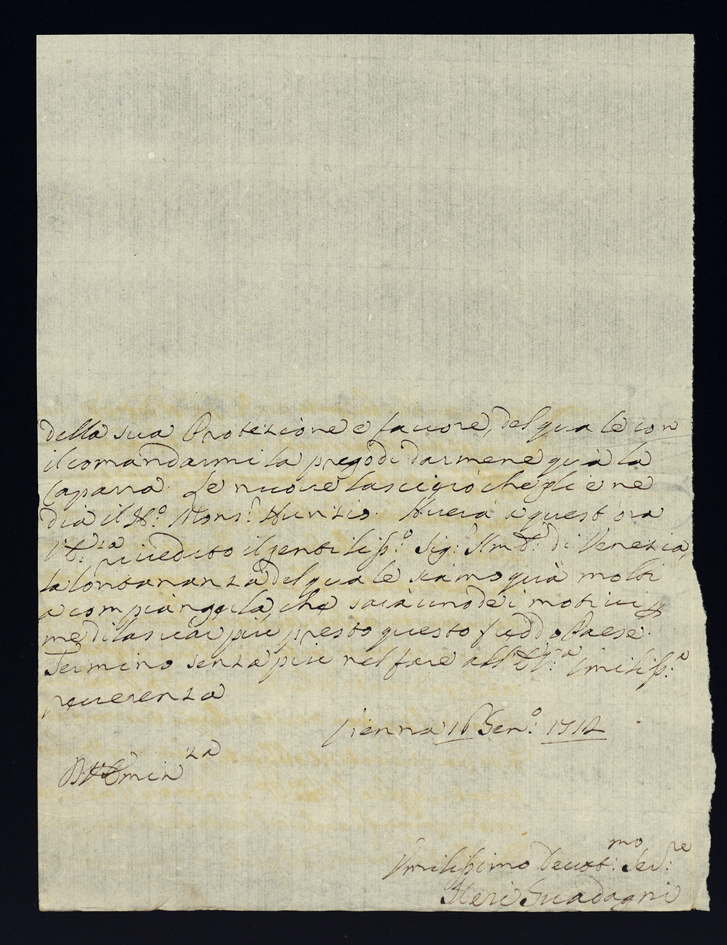 della sua Protezione e fauore, del quale con
il comandarmi la prego di darmene qua la
Caparra. Le nuoue lascierò che gli e ne
dia il N.º Mons.r Nunzio. Auera a quest ora
V. E.za riueduto il gentiliss.º Sig: Amb.r di Venezia,
la lontananza del quale siamo quà molti
a compiangerla, che sarà uno dei motiui
me di lasciar più presto questo freddo Paese.
Termino senza più nel fare all' E.za Umiliss.a
reuerenza
Vienna 16 Gen.º 1712
Di V. Emin.za
Umilissimo Deuot.mo Ser.re
Neri Guadagni